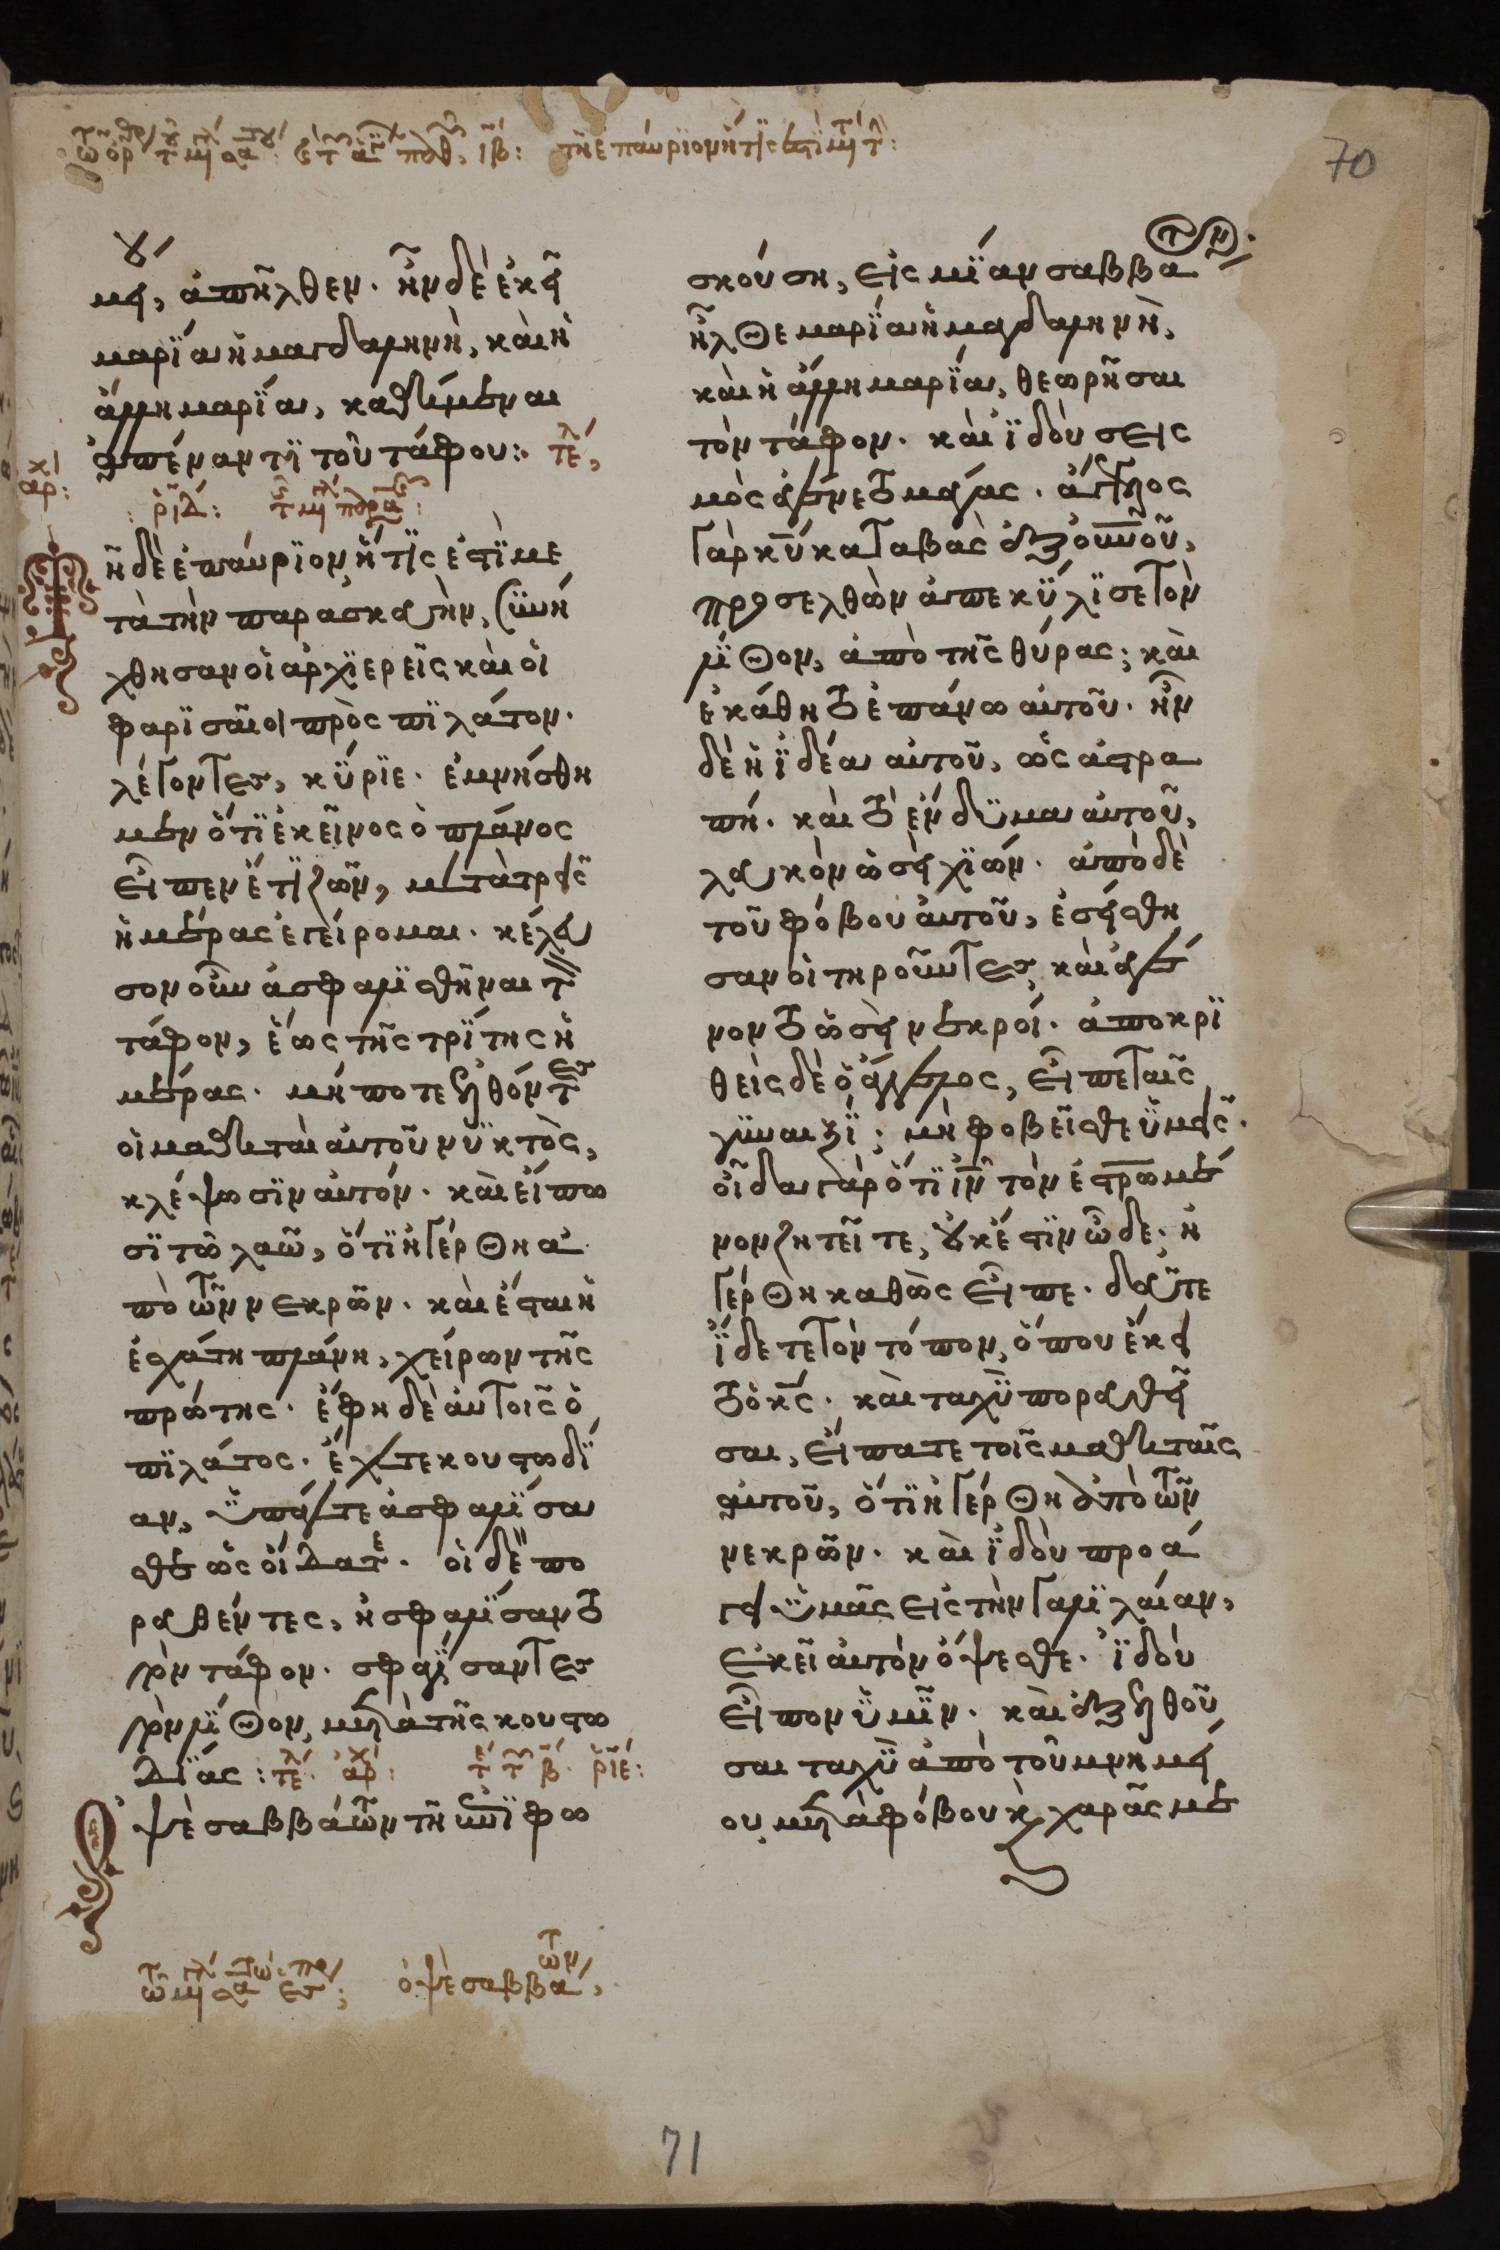 70
μεί(ου), ἀπῆλθεν. ἦν δὲ ἐκεῖ
μαρΐα ἡ μαγδαληνὴ, καὶ ἡ
ἄλλη μαρΐα, καθήμεναι
ἀπέναντϊ τοῦ τάφου: τέλ
ἀρχ:
ῆ δὲ ἐπαύριον, ἥτϊς ἐστὶ με
τὰ τὴν παρασκευὴν, συνή
χθησαν οἱ ἀρχϊερεῖς καὶ οἱ
φαρϊσαῖοι πρὸς πϊλάτον.
λέγοντες, κύριε. ἐμνήσθη
μεν ὅτϊ ἐκεῖνος ὁ πλάνος
εἶπεν ἔτϊ ζῶν, μετὰ τρεῖς
ἡμέρας ἐγείρομαι. κέλευ
σον οὖν ἀσφαλϊσθῆναι τ
τάφον, ἕως τῆς τρίτης ἡ
μέρας. μήποτε ἐλθόντες
οἱ μαθηταὶ αὐτοῦ νϋκτὸς,
κλέψωσϊν αὐτόν. καὶ εἴπω
σϊ τῶ λαῶ, ὅτϊ ἠγέρθη ἀ
πὸ τῶν νεκρῶν. καὶ ἔσται ἡ
ἐσχάτη πλάνη, χείρων τῆς
πρώτης. ἔφη δὲ αὐτοῖς ὁ
πϊλάτος. ἔχετε κουστωδΐ
αν, ϋπάγετε ἀσφαλΐσα
σθε ὡς οἴδατε. οἱ δὲ πο
ρευθέντες, ἠσφαλΐσαντο
τὸν τάφον. σφραγΐσαντες
τὸν λΐθον, μετὰ τῆς κουστω
δΐας: τέλ. ἀρχ: ριε:
Ὀψὲ σαββάτων τῆ ἐπϊφω
ὀψὲ σαββάτων,
σκούση, εἰς μΐαν σαββα
ἦλθε μαρΐα ἡ μαγδαληνὴ,
καὶ ἡ ἄλλη μαρΐα, θεωρῆσαι
τὸν τάφον. καὶ ϊδοὺ σεισ
μὸς ἐγένετο μέγας. ἄγγελος
γὰρ κυ καταβὰς ἐξ ουνοῦ,
προσελθὼν ἀπεκϋλϊσε τὸν
λΐθον, ἀπὸ τῆς θύρας; καὶ
ἐκάθητο ἐπάνω αὐτοῦ. ἦν
δὲ ἡ ϊδέα αὐτοῦ, ὡς ἀστρα
πή. καὶ τὸ ἔνδϋμα αὐτοῦ,
λευκὸν ὡσεὶ χϊών. ἀπὸ δὲ
τοῦ φόβου αὐτοῦ, ἐσείσθη
σαν οἱ τηροῦντες, καὶ ἐγέ
νοντο ὡσεὶ νεκροί. ἀποκρϊ
θεὶς δὲ ὁ ἄγγελος, εἶπε ταῖς
γϋναιξΐ; μὴ φοβεῖσθε ϋμεῖς.
οἶδα γὰρ ὅτϊ ιν τὸν ἐστρωμέ
νον ζητεῖτε, οὐκ ἔστϊν ὧδε. ἠ
γέρθη καθὼς εἶπε. δεῦτε
ΐδετε τὸν τόπον, ὅπου ἔκει
το ὁ κς. καὶ ταχϋ πορευθεῖ
σαι, εἴπατε τοῖς μαθηταῖς
αὐτοῦ, ὅτϊ ἠγέρθη ἀπὸ τῶν
νεκρῶν. καὶ ϊδοὺ προά
γει ϋμᾶς εἰς τὴν γαλϊλαίαν,
ἐκεῖ αὐτὸν ὄψεσθε. ϊδοὺ
εἶπον ϋμῖν. καὶ ἐξελθοῦ
σαι ταχϋ ἀπὸ τοῦ μνημεί
ου, μετὰ φόβου καὶ χαρᾶς με
71